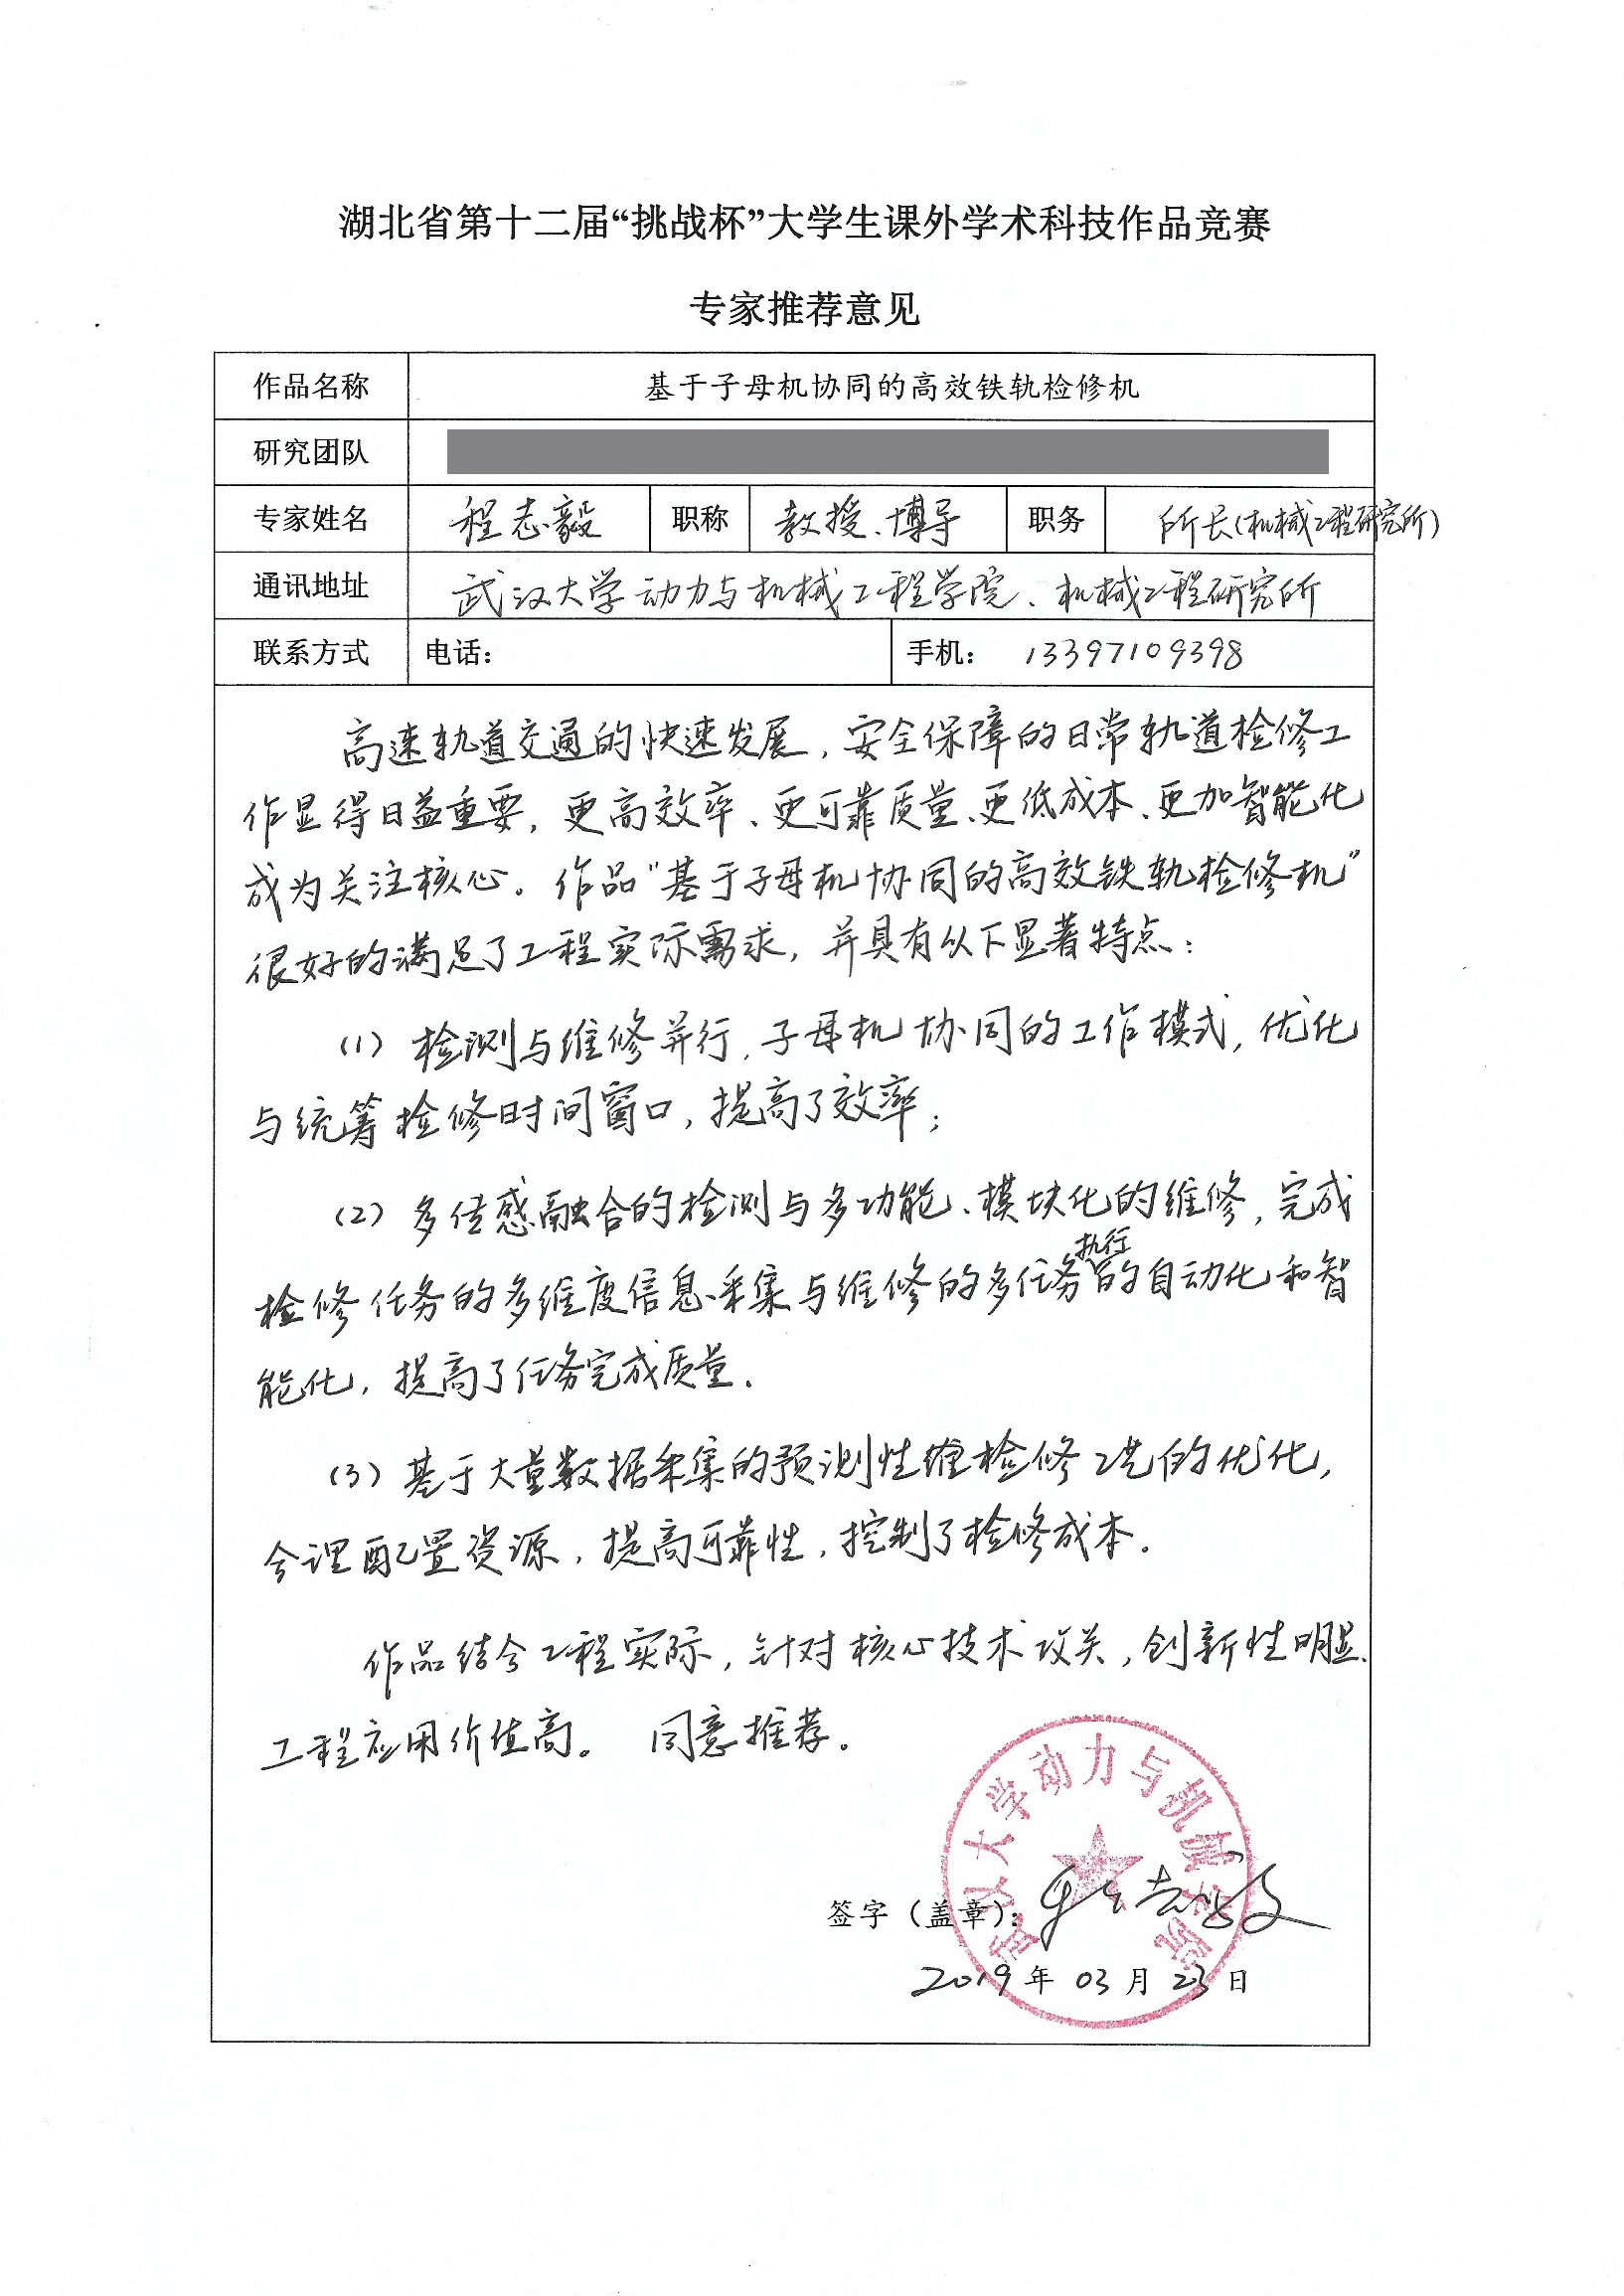 湖北省第十二届“挑战杯”大学生课外学术科技作品竞赛
专家推荐意见
作品名称 基于子母机协同的高效铁轨检修机
研究团队
专家姓名 程志毅 职称 教授、博导 职务 所长(机械工程研究所)
通讯地址 武汉大学动力与机械工程学院、机械工程研究所
联系方式 电话： 手机： 13397109398
高速轨道交通的快速发展，安全保障的日常轨道检修工
作显得日益重要，更高效率、更可靠质量、更低成本、更加智能化
成为关注核心。作品“基于子母机协同的高效铁轨检修机”
很好的满足了工程实际需求，并具有以下显著特点：
(1) 检测与维修并行，子母机协同的工作模式，优化
与统筹检修时间窗口，提高了效率；
(2) 多传感融合的检测与多功能、模块化的维修，完成
检修任务的多维度信息采集与维修的多任务执行的自动化和智
能化，提高了任务完成质量.
(3) 基于大量数据采集的预测性检修工艺的优化，
合理配置资源，提高可靠性，控制了检修成本.
作品结合工程实际，针对核心技术攻关，创新性明显、
工程应用价值高。 同意推荐.
武汉大学动力与机械学院
签字（盖章）：程志毅
2019年 03月 23日